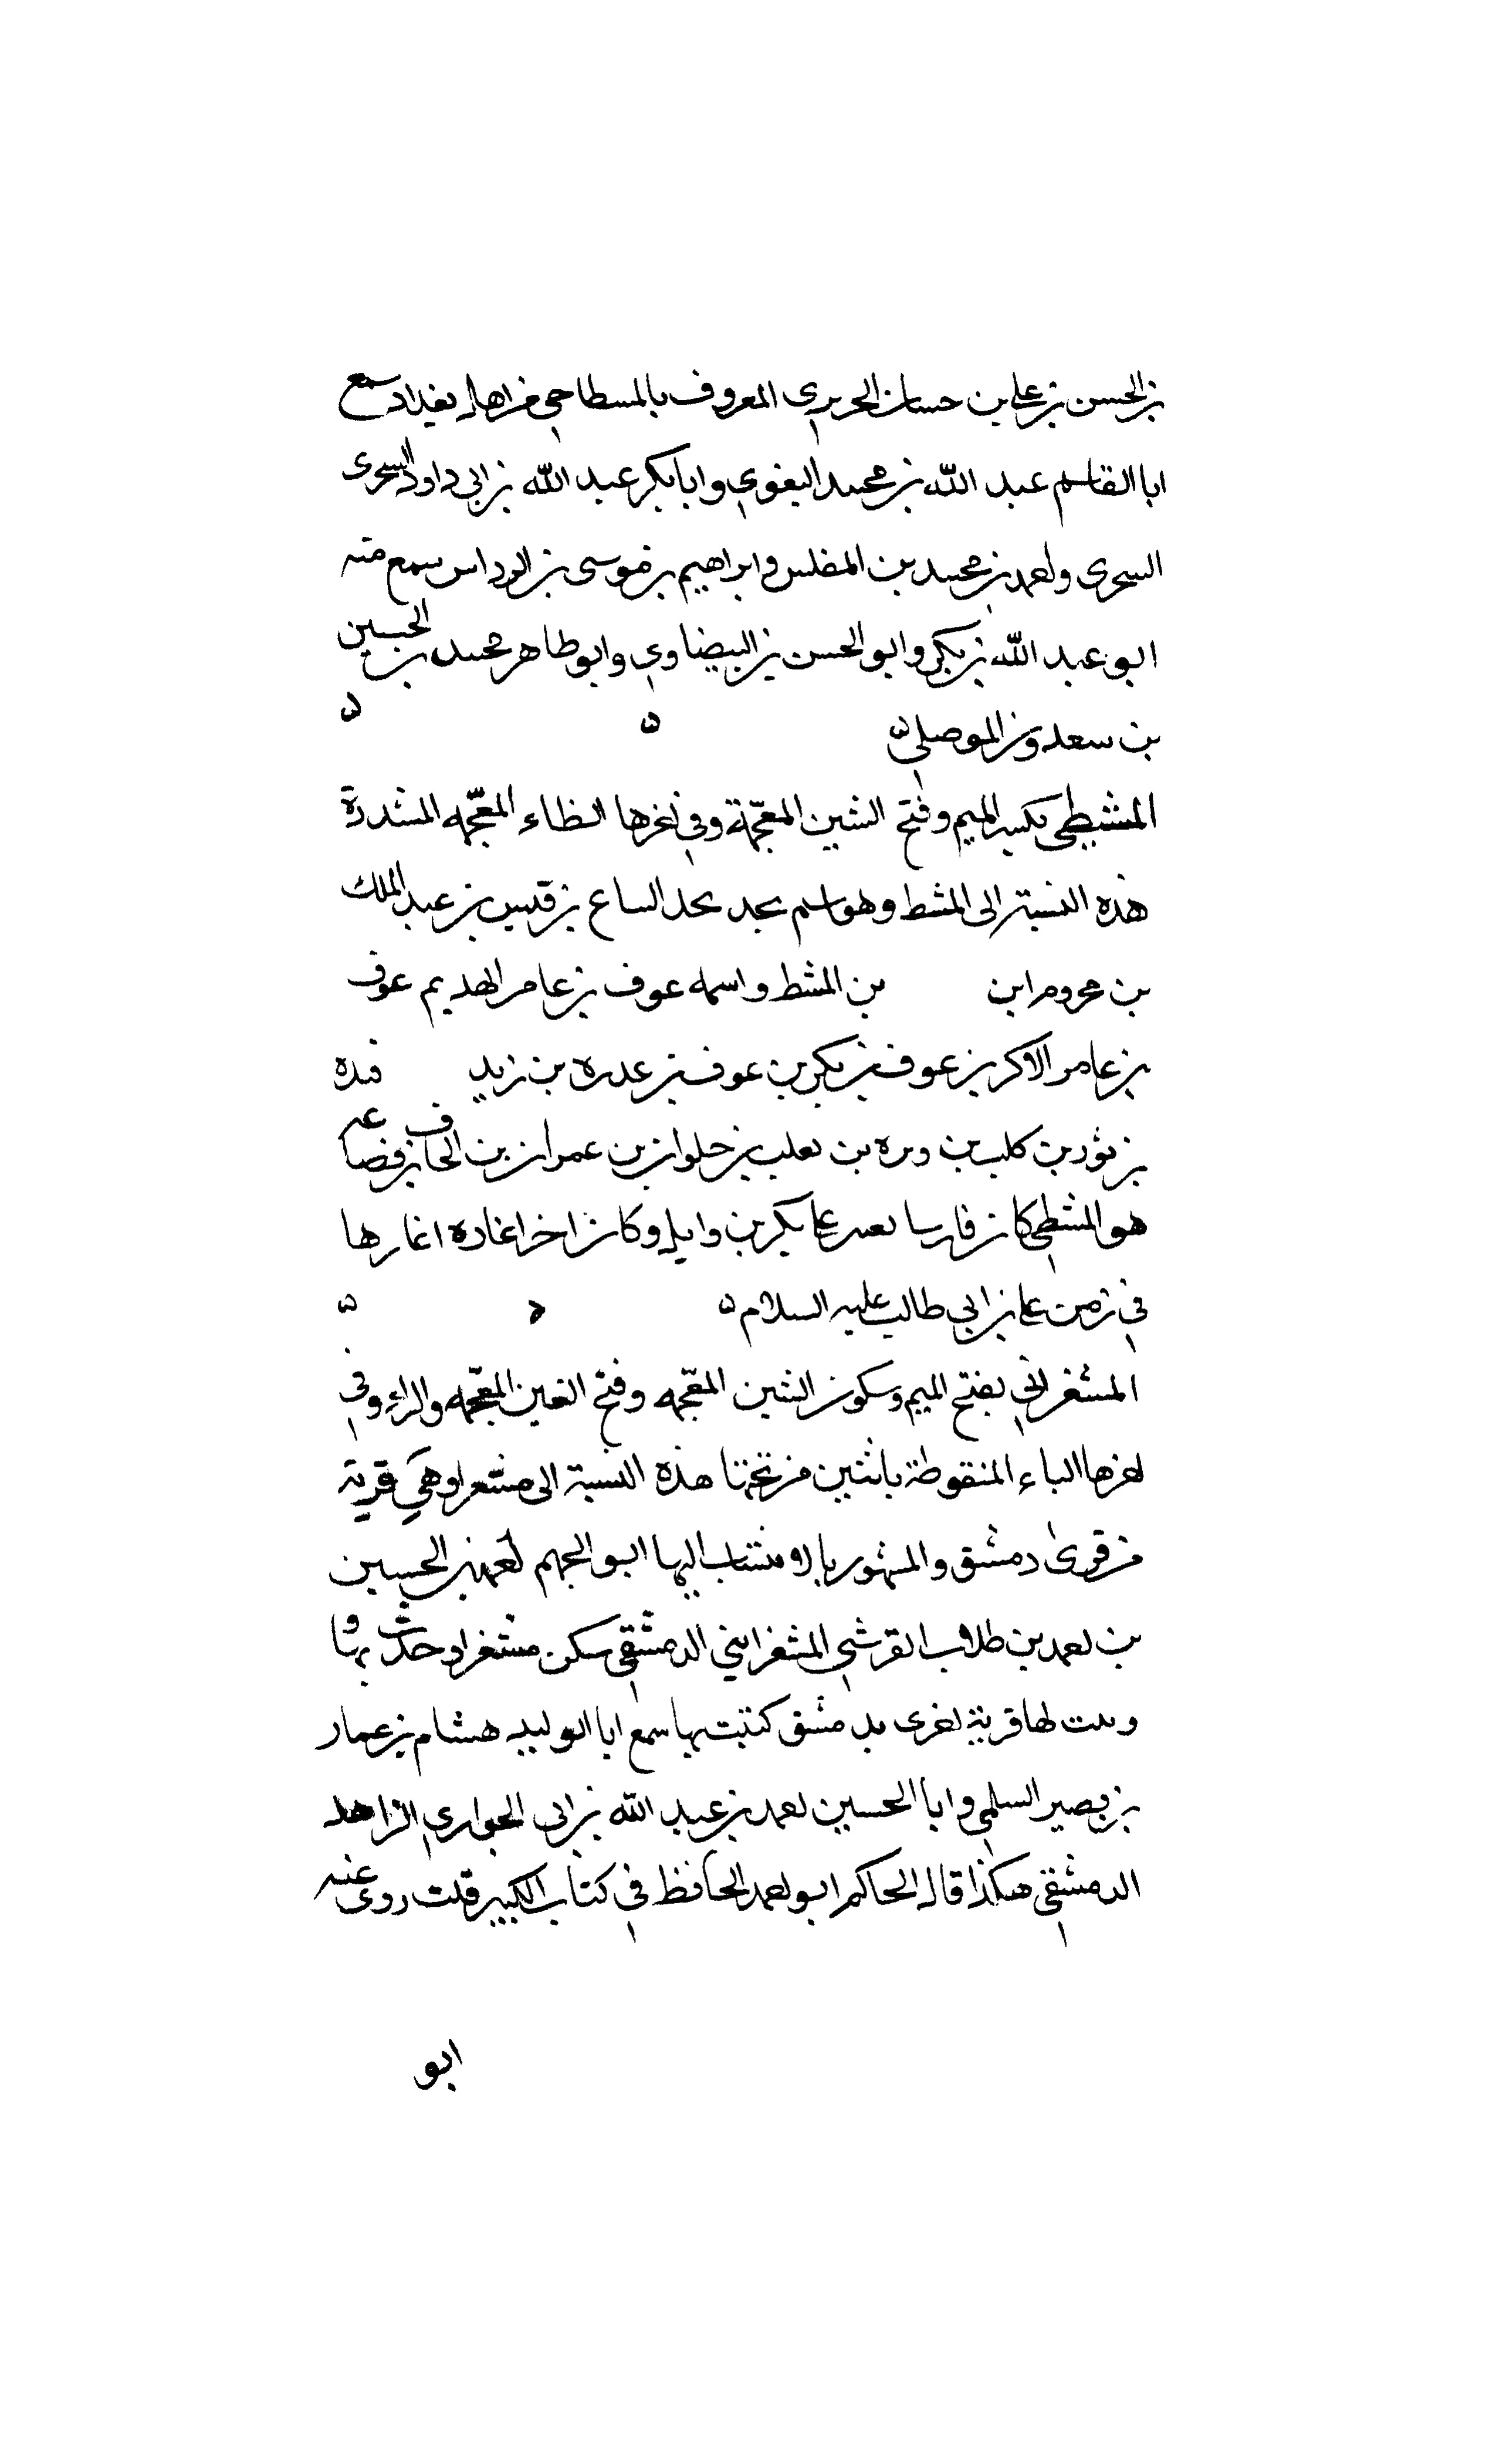 بن الحسن بن علي بن حسان الحريري المعروف بالمسطاحي من اهل بغداد سمع
ابا القاسم عبد الله بن محمد البغوي وابا بكر عبد الله بن ابي داود السحرى
السحرى واحمد بن محمد بن المغلس وابراهيم بن موسى بن الرداس سمع منه
ابو عبد الله بن بكير وابو الحسن بن البيضاوي وابو طاهر محمد بن الحسين
بن سعدون الموصلي
المشطي بكسر الميم وفتح الشين المعجمة وفي اخرها الظاء المعجمه المشددة
هذه النسبة الى المشط وهو اسم بجد الساع بن قيس بن عبد الملك
بن محروم ابن بن المشط واسمه عوف بن عامر الهديم عوف
بن عامر الاكبر بن عوف بن بكر بن عوف بن عدره بن زيد
بن ثور بن كلب بن وبره بن تعلب بن حلوان بن عمران بن الحاف بن قضاعه
هو المشطي كان فارسا بكر بن وايل وكان اخر اغاده اغارها
في زمن علي بن ابي طالب عليه السلام
المشغراني بفتح الميم وسكون الشين المعجمه وفتح الغين المعجمه والراء وفي
اخرها الياء المنقوطة باثنين من تحتها هذه النسبة الى مشغرا وهي قرية
من قرى دمشق والمشهور بالا منتساب اليها ابو الجهم احمد بن الحسين
بن احمد بن طلاب القرشي المشغرايني الدمشقي سكن مشغرا وحدث بها و
وبيت لها قرية اخرى بدمشق كتبت بها سمع ابا الوليد هشام بن عمار
بن نصير السلمي وابا الحسين احمد بن عبد الله بن ابي الحواري الزاهد
الدمشقي هكذا قال الحاكم ابو احمد الحافظ في كتاب الكبير قلت روى عنه
ابو